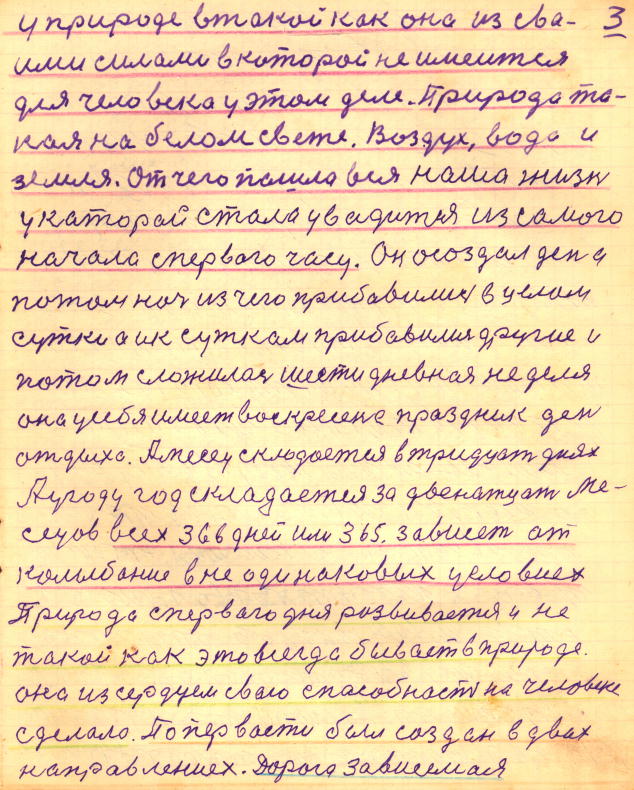 у природе в такой как она из сва- 3
ими силами в которой не имеится
для человека у этом деле. Природа та-
кая на белом свете. Воздух, вода и
земля. От чего пошла вся наша жизн
у каторай стала увадится из самого
начала спервого часу. Он осоздал ден а
потом ноч из чего прибавилис в целом
сутки а ик суткам прибавилис другие и
потом сложилас шестидневная неделя
она у себя имеет воскресене праздник ден
отдыха. А месец складается в тридцат днях
А у году год складается за двенатцат ме-
сецов всех 366 дней или 365. зависет от
колыбание в не одинаковых условиех
Природа спервого дня развивается и не
такой как это всегда бывает в природе.
она из сердцем сваю способность на человеке
сделало. По первасти был создан в двах
направлениех. Дорога зависемая